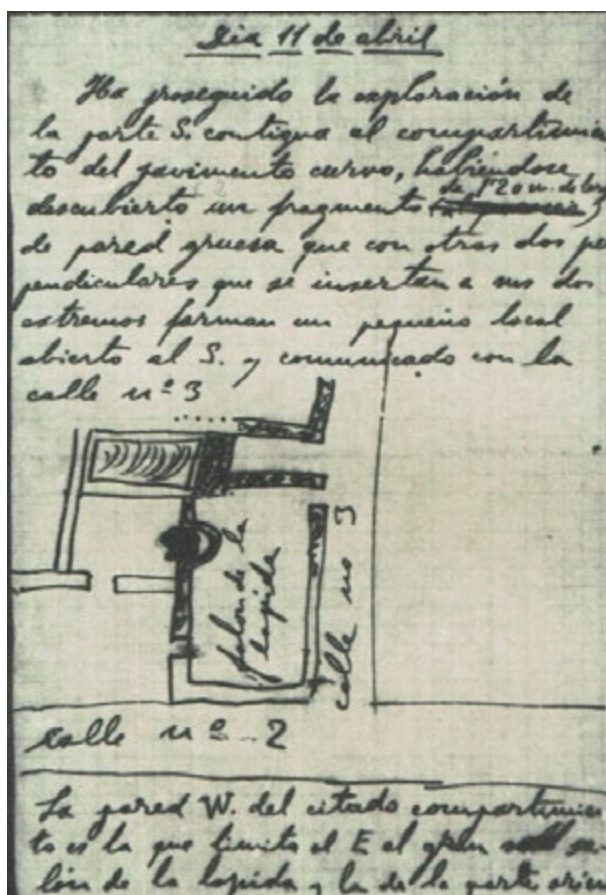 Dia 11 de abril
Ha proseguido la exploración de
la parte S. contigua al compartimien
to del pavimento curvo, habiéndose
descubierto un fragmento de 1'20 m. de
de pared gruesa que con otras dos pe
pendiculares que se insertan a sus dos
extremos forman un pequeño local
abierto al S. y comunicado con la
calle nº 3
salon de la
lapida
calle no 3
calle nº 2
La pared W. del citado compartimien
to es la que limita al E el gran sa-
lón de la lapida y la de la parte